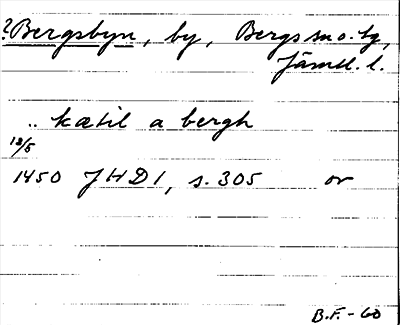 ?Bergsbyn, by, Bergs sn o. tg,
Jämtl. l.
.. kætil a bergh
12/5
1450 JHD1, s. 305 or
B.F.-60